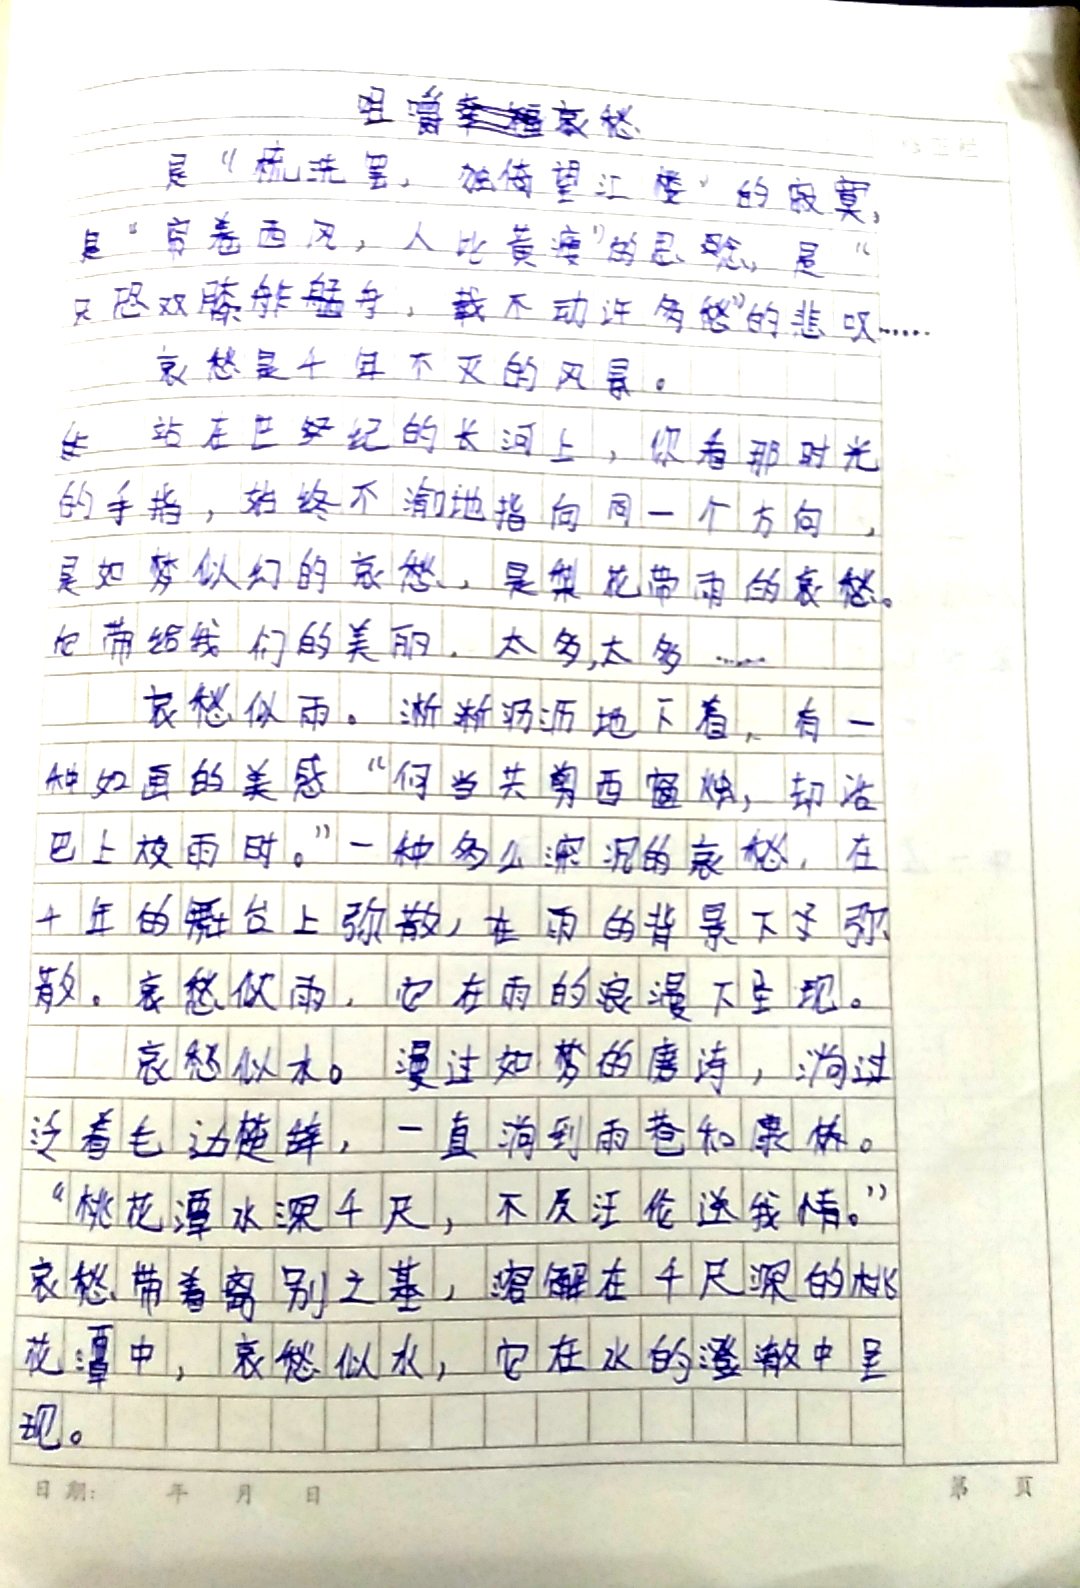 咀嚼哀愁
是“梳洗罢，独倚望江楼”的寂寞，
是“帘卷西风，人比黄瘦”的思愁，是“
只恐双膝舴艋舟，载不动许多愁”的悲叹……
哀愁是千年不灭的风景。
站在世纪的长河上，你看那时光
的手指，始终不渝地指向同一个方向，
是如梦似幻的哀愁，是梨花带雨的哀愁。
它带给我们的美丽，太多，太多……
哀愁似雨。淅淅沥沥地下着，有一
种如画的美感“何当共剪西窗烛，却话
巴上夜雨时。”一种多么深沉的哀愁，在
千年的舞台上弥散，在雨的背景下弥
散。哀愁似雨，它在雨的浪漫下呈现。
哀愁似水。漫过如梦的唐诗，淌过
泛着毛边，一直淌到雨巷和康桥。
“桃花潭水深千尺，不及汪伦送我情。”
哀愁带着离别之基，溶解在千尺深的桃
花潭中，哀愁似水，它在水的澄澈中呈
现。
日期： 年 月 日
第 页